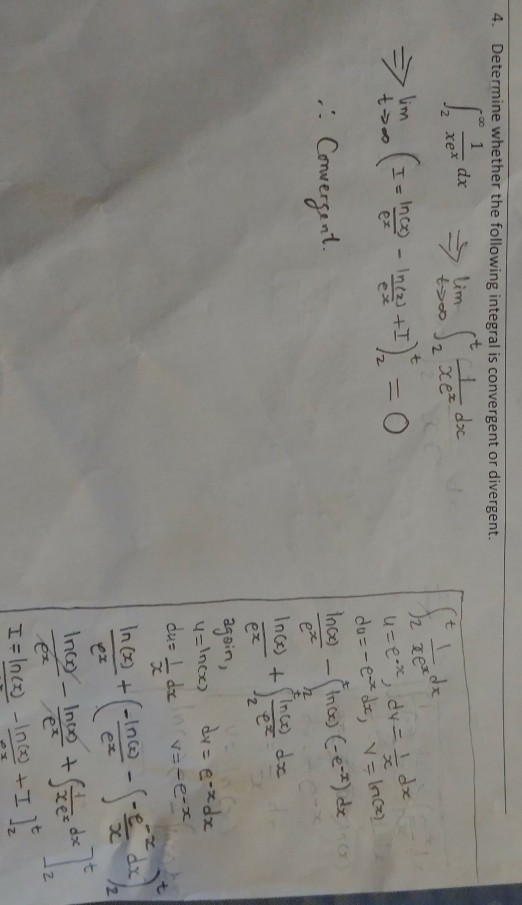 4. Determine whether the following integral is convergent or divergent.
∫₂^∞ 1/(xe^x) dx ⇒ lim t→∞ ∫₂^t 1/(xe^x) dx
⇒ lim t→∞ (I = ln(x)/e^x - ln(x)/e^x + I)₂^t = 0
∴ Convergent.
∫₂^t 1/(xe^x) dx
u = e^-x, dv = 1/x dx
du = -e^-x dx, v = ln(x)
ln(x)/e^x - ∫₂^t ln(x) (-e^-x) dx
ln(x)/e^x + ∫₂^t ln(x)/e^x dx
again,
u = ln(x) dv = e^-x dx
du = 1/x dx v = -e^-x
ln(x)/e^x + (-ln(x)/e^x - ∫ -e^-x/x dx)₂^t
ln(x)/e^x - ln(x)/e^x + ∫ 1/(xe^x) dx ]₂^t
I = ln(x)/e^x - ln(x)/e^x + I ]₂^t